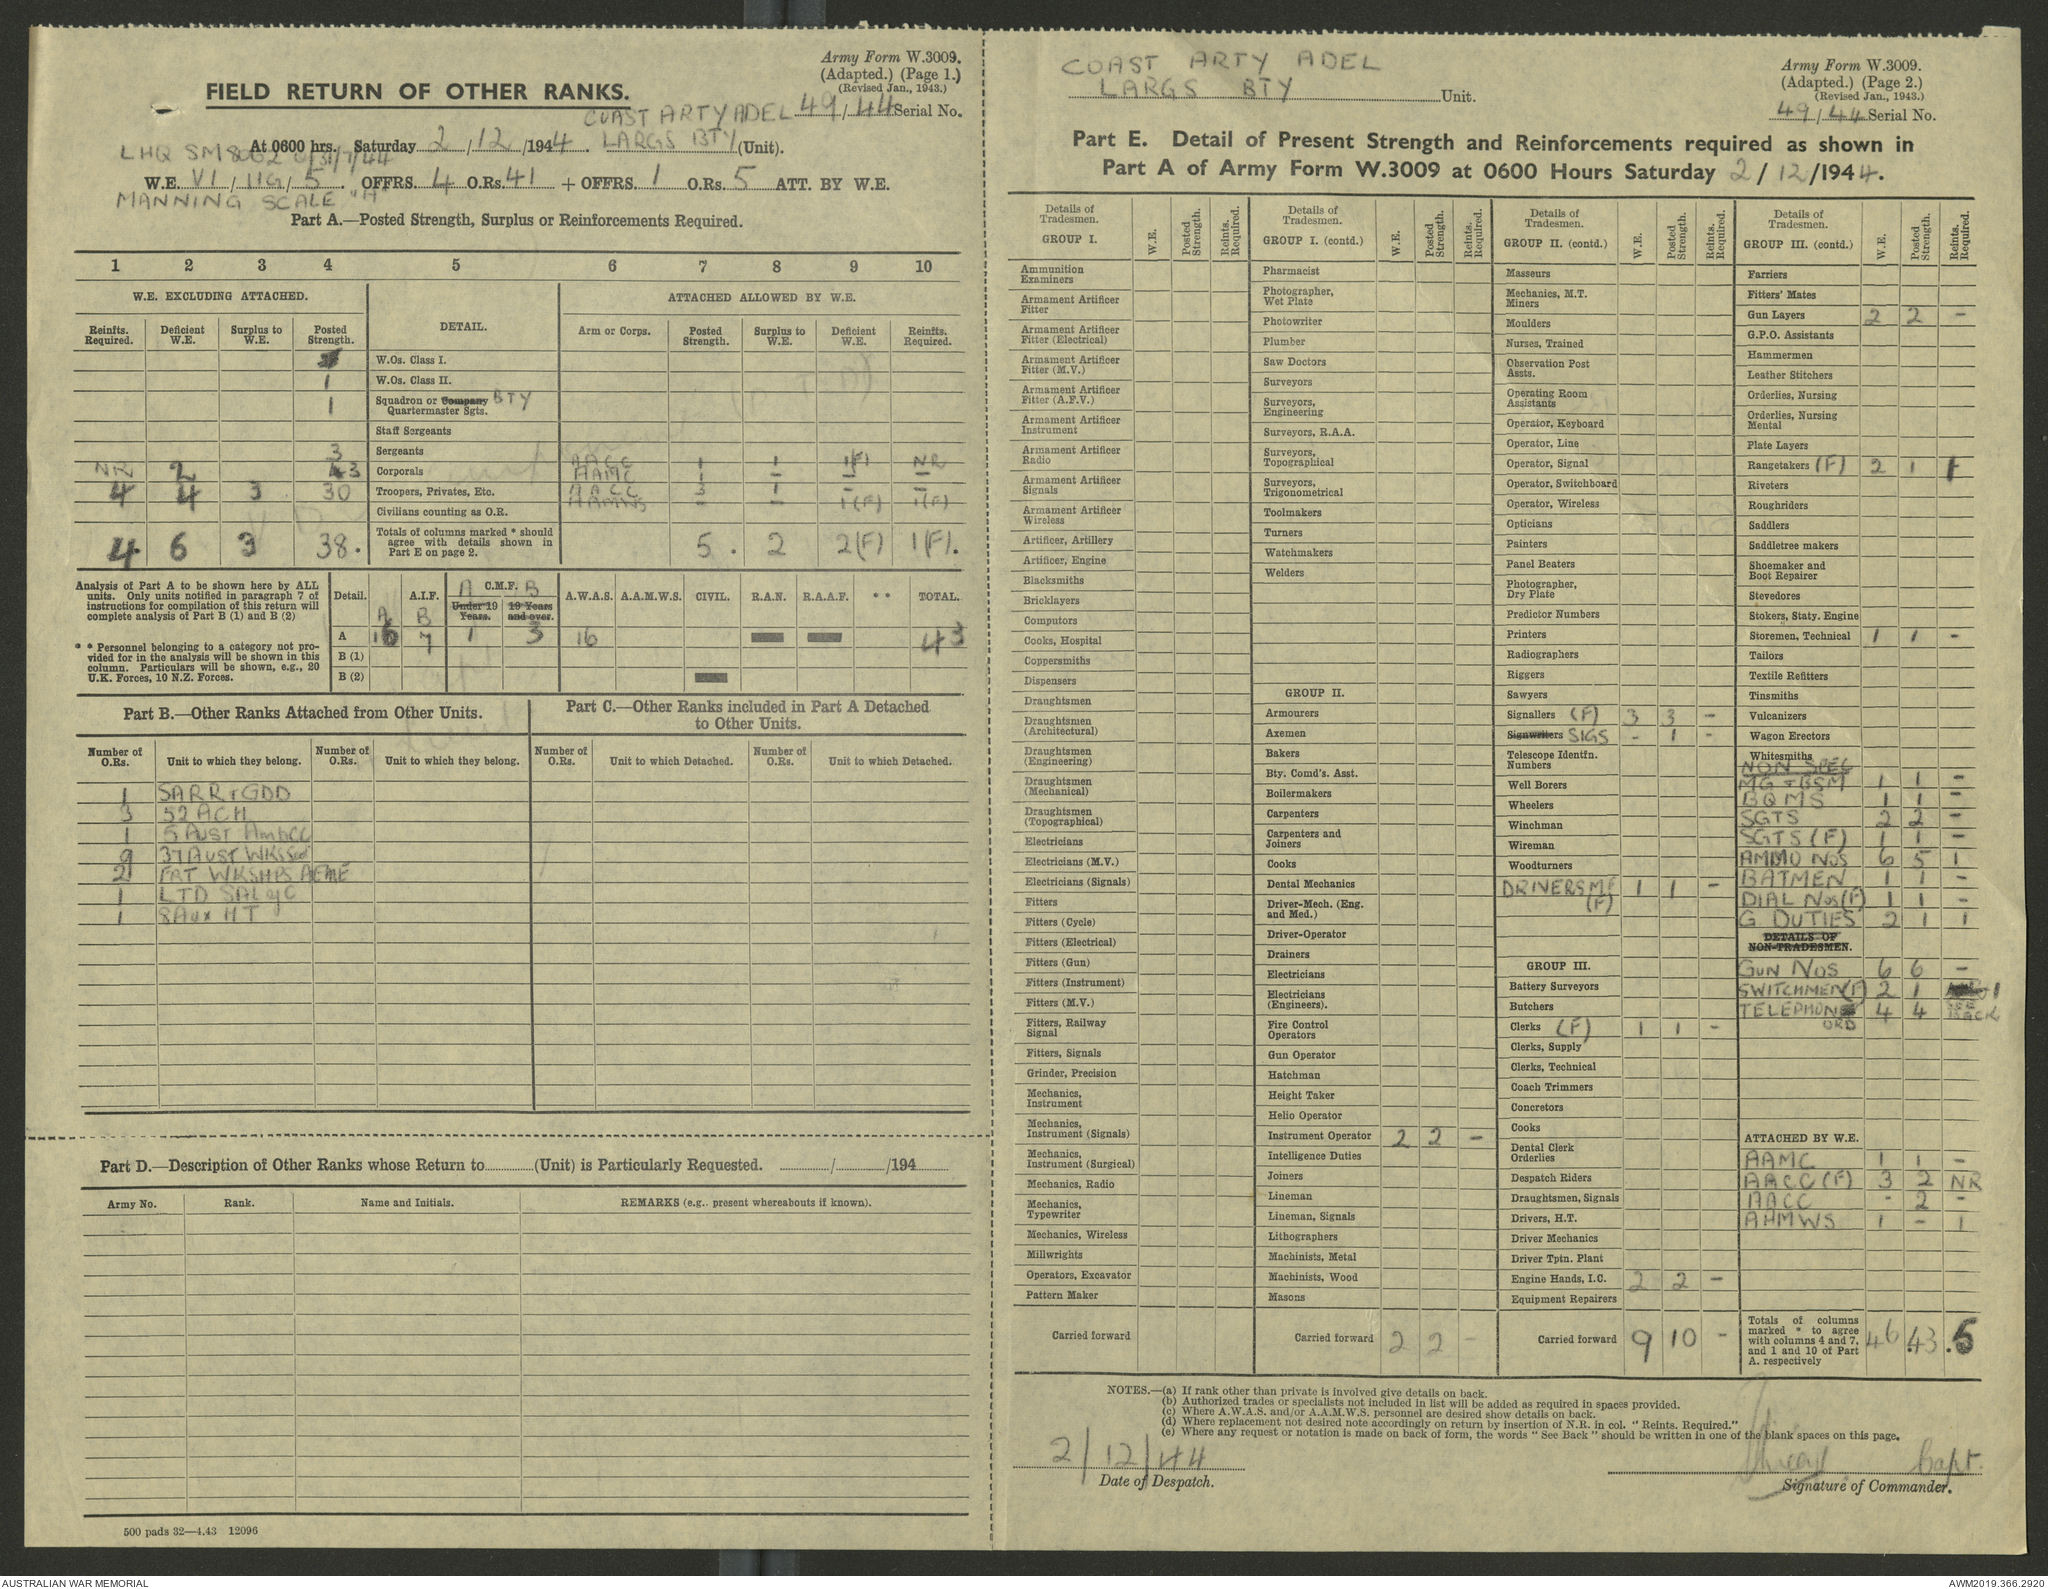 Army Form W.3009.
(Adapted.) (Page 1.)
(Revised Jan., 1943.)
FIELD RETURN OF OTHER RANKS.
COAST ARTY ADEL 49/44 Serial No.
At 0600 hrs. Saturday 2/12/1944. LARGS BTY (Unit).
LHQ
W.E. VI/11G/5. OFFRS. 4 O.Rs. 41 + OFFRS. 1 O.Rs. 5 ATT. BY W.E.
MANNING SCALE "A"
Part A.—Posted Strength, Surplus or Reinforcements Required.
1 2 3 4 5 6 7 8 9 10
W.E. EXCLUDING ATTACHED. DETAIL. ATTACHED ALLOWED BY W.E.
Reinfts. Required. Deficient W.E. Surplus to W.E. Posted Strength. Arm or Corps. Posted Strength. Surplus to W.E. Deficient W.E. Reinfts. Required.
W.Os. Class I.
1 W.Os. Class II.
1 Squadron or Company BTY Quartermaster Sgts.
Staff Sergeants
3 Sergeants
NR 2 3 Corporals AACC 1 1 1(F) NR
AAMC 1 – – –
4 4 3 30 Troopers, Privates, Etc. AACC 3 1 – –
AAMWS – – 1(F) 1(F)
Civilians counting as O.R.
4 6 3 38. Totals of columns marked * should agree with details shown in Part E on page 2. 5. 2 2(F) 1(F).
Analysis of Part A to be shown here by ALL units. Only units notified in paragraph 7 of instructions for compilation of this return will complete analysis of Part B (1) and B (2)
* * Personnel belonging to a category not provided for in the analysis will be shown in this column. Particulars will be shown, e.g., 20 U.K. Forces, 10 N.Z. Forces.
Detail. A.I.F. A B C.M.F. A B Under 19 Years. 19 Years and over. A.W.A.S. A.A.M.W.S. CIVIL. R.A.N. R.A.A.F. * * TOTAL.
A 16 7 1 3 16 43
B (1)
B (2)
Part B.—Other Ranks Attached from Other Units.
Part C.—Other Ranks included in Part A Detached to Other Units.
Number of O.Rs. Unit to which they belong. Number of O.Rs. Unit to which they belong. Number of O.Rs. Unit to which Detached. Number of O.Rs. Unit to which Detached.
1 SARR & GDD
3 52 ACH
1 5 AUST
9 37 AUST WKS
2 FRT WKSHPS AEME
1 LTD
1 8 Aux HT
Part D.—Description of Other Ranks whose Return to (Unit) is Particularly Requested. / /194
Army No. Rank. Name and Initials. REMARKS (e.g., present whereabouts if known).
500 pads 32—4.43 12096
COAST ARTY ADEL
LARGS BTY Unit.
Army Form W.3009.
(Adapted.) (Page 2.)
(Revised Jan., 1943.)
49/44 Serial No.
Part E. Detail of Present Strength and Reinforcements required as shown in
Part A of Army Form W.3009 at 0600 Hours Saturday 2/12/1944.
Details of Tradesmen. W.E. Posted Strength. Reints. Required.
GROUP I.
Ammunition Examiners
Armament Artificer Fitter
Armament Artificer Fitter (Electrical)
Armament Artificer Fitter (M.V.)
Armament Artificer Fitter (A.F.V.)
Armament Artificer Instrument
Armament Artificer Radio
Armament Artificer Signals
Armament Artificer Wireless
Artificer, Artillery
Artificer, Engine
Blacksmiths
Bricklayers
Computors
Cooks, Hospital
Coppersmiths
Dispensers
Draughtsmen
Draughtsmen (Architectural)
Draughtsmen (Engineering)
Draughtsmen (Mechanical)
Draughtsmen (Topographical)
Electricians
Electricians (M.V.)
Electricians (Signals)
Fitters
Fitters (Cycle)
Fitters (Electrical)
Fitters (Gun)
Fitters (Instrument)
Fitters (M.V.)
Fitters, Railway Signal
Fitters, Signals
Grinder, Precision
Mechanics, Instrument
Mechanics, Instrument (Signals)
Mechanics, Instrument (Surgical)
Mechanics, Radio
Mechanics, Typewriter
Mechanics, Wireless
Millwrights
Operators, Excavator
Pattern Maker
Carried forward
Details of Tradesmen. W.E. Posted Strength. Reints. Required.
GROUP I. (contd.)
Pharmacist
Photographer, Wet Plate
Photowriter
Plumber
Saw Doctors
Surveyors
Surveyors, Engineering
Surveyors, R.A.A.
Surveyors, Topographical
Surveyors, Trigonometrical
Toolmakers
Turners
Watchmakers
Welders
GROUP II.
Armourers
Axemen
Bakers
Bty. Comd's. Asst.
Boilermakers
Carpenters
Carpenters and Joiners
Cooks
Dental Mechanics
Driver-Mech. (Eng. and Med.)
Driver-Operator
Drainers
Electricians
Electricians (Engineers).
Fire Control Operators
Gun Operator
Hatchman
Height Taker
Helio Operator
Instrument Operator 2 2 –
Intelligence Duties
Joiners
Lineman
Lineman, Signals
Lithographers
Machinists, Metal
Machinists, Wood
Masons
Carried forward 2 2 –
Details of Tradesmen. W.E. Posted Strength. Reints. Required.
GROUP II. (contd.)
Masseurs
Mechanics, M.T.
Miners
Moulders
Nurses, Trained
Observation Post Assts.
Operating Room Assistants
Operator, Keyboard
Operator, Line
Operator, Signal
Operator, Switchboard
Operator, Wireless
Opticians
Painters
Panel Beaters
Photographer, Dry Plate
Predictor Numbers
Printers
Radiographers
Riggers
Sawyers
Signallers (F) 3 3 –
Signwriters SIGS – 1 –
Telescope Identfn. Numbers
Well Borers
Wheelers
Winchman
Wireman
Woodturners
DRIVERS MT (F) 1 1 –
GROUP III.
Battery Surveyors
Butchers
Clerks (F) 1 1 –
Clerks, Supply
Clerks, Technical
Coach Trimmers
Concretors
Cooks
Dental Clerk Orderlies
Despatch Riders
Draughtsmen, Signals
Drivers, H.T.
Driver Mechanics
Driver Tptn. Plant
Engine Hands, I.C. 2 2 –
Equipment Repairers
Carried forward 9 10 –
Details of Tradesmen. W.E. Posted Strength. Reints. Required.
GROUP III. (contd.)
Farriers
Fitters' Mates
Gun Layers 2 2 –
G.P.O. Assistants
Hammermen
Leather Stitchers
Orderlies, Nursing
Orderlies, Nursing Mental
Plate Layers
Rangetakers (F) 2 1 1
Riveters
Roughriders
Saddlers
Saddletree makers
Shoemaker and Boot Repairer
Stevedores
Stokers, Staty. Engine
Storemen, Technical 1 1 –
Tailors
Textile Refitters
Tinsmiths
Vulcanizers
Wagon Erectors
Whitesmiths
NON SPEC
MG & BSM 1 1 –
BQMS 1 1 –
SGTS 2 2 –
SGTS (F) 1 1 –
AMMO NOS 6 5 1
BATMEN 1 1 –
DIAL NOS (F) 1 1 –
G. DUTIES 2 1 1
DETAILS OF NON-TRADESMEN.
GUN NOS 6 6 –
SWITCHMEN (F) 2 1 1
TELEPHON ORD 4 4 SEE BACK
ATTACHED BY W.E.
AAMC 1 1 –
AACC (F) 3 2 NR
AACC – 2 –
AAMWS 1 – 1
Totals of columns marked * to agree with columns 4 and 7, and 1 and 10 of Part A. respectively 46 43 5
NOTES.—(a) If rank other than private is involved give details on back.
(b) Authorized trades or specialists not included in list will be added as required in spaces provided.
(c) Where A.W.A.S. and/or A.A.M.W.S. personnel are desired show details on back.
(d) Where replacement not desired note accordingly on return by insertion of N.R. in col. "Reints. Required."
(e) Where any request or notation is made on back of form, the words "See Back" should be written in one of the blank spaces on this page.
2/12/44
Date of Despatch.
Capt.
Signature of Commander.
AUSTRALIAN WAR MEMORIAL
AWM2019.366.2920